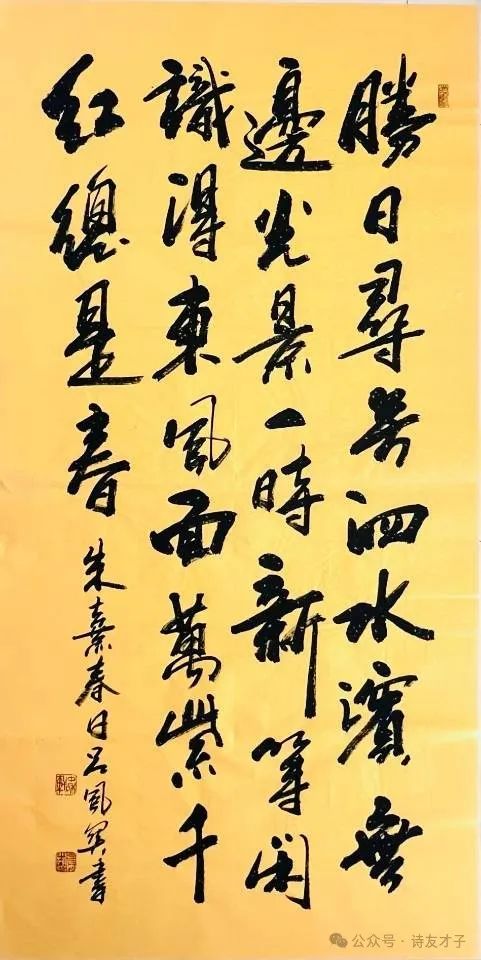 勝日尋芳泗水濱無
邊光景一時新等閑
識得東風面萬紫千
紅總是春
朱熹春日呂風書
公众号 · 诗友才子